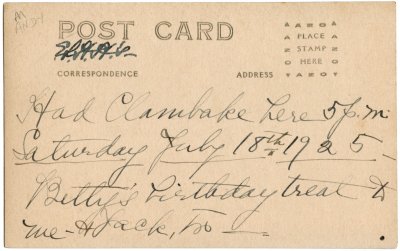 POST CARD
CORRESPONDENCE
ADDRESS
AZO
PLACE
STAMP
HERE
AZO
Had Clambake here 5 p.m.
Saturday July 18th 1925 -
Betty's birthday treat to
me - & Jack, too -